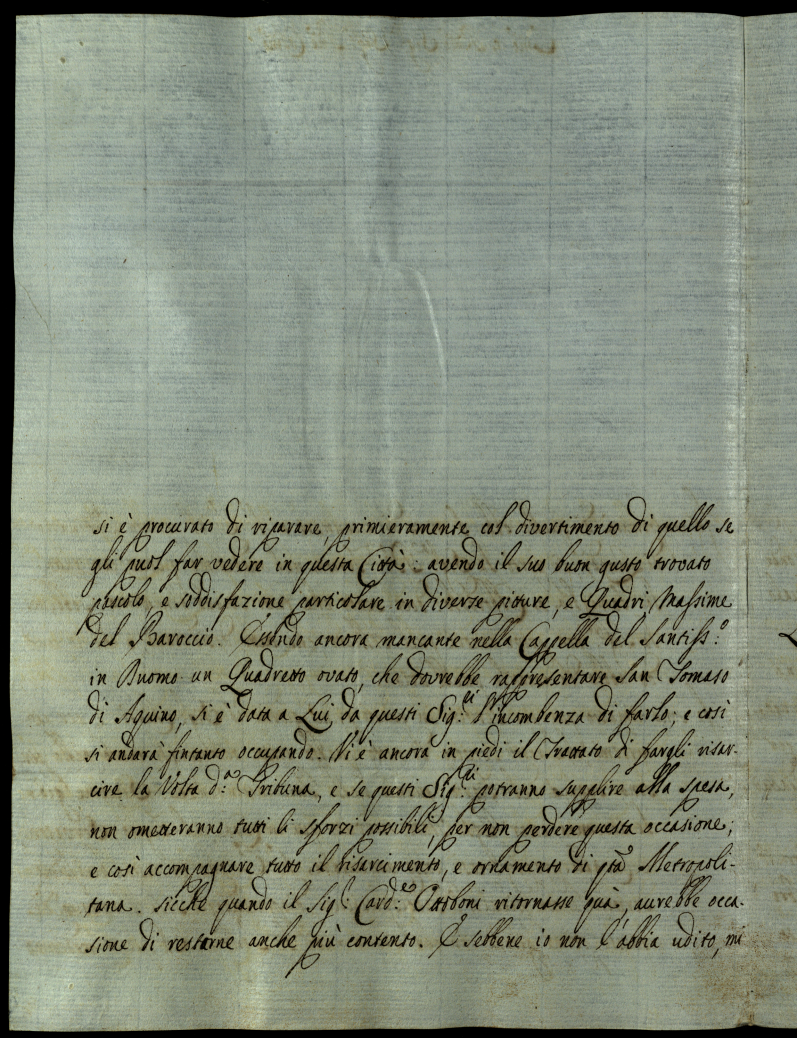 si è procurato di riparare, primieramente col divertimento di quello se
gli puol far vedere in questa Città: avendo il suo buon gusto trovato
pascolo, e soddisfazione particolare in diverse picture, e Quadri Massime
del Baroccio. Essendo ancora mancante nella Cappella del Santiss:o
in Duomo un Quadretto ovato, che dovrebbe rappresentare San Tomaso
di Aquino, si è data a Lui, da questi Sig:ri l'incombenza di farlo; e così
si andarà fintanto occupando. Vi è ancora in piedi il Trattato di fargli risar-
cire la Volta d:a Tribuna, e se questi Sig:ri potranno supplire alla spesa,
non ometteranno tutti li sforzi possibili, per non perdere questa occasione;
e così accompagnare tutto il risarcimento, e ornamento di qta Metropoli-
tana. sicche quando il Sig: Card:e Ottoboni ritornasse quà, aurebbe occa-
sione di restarne anche più contento. E sebbene io non l'abbia udito, mi